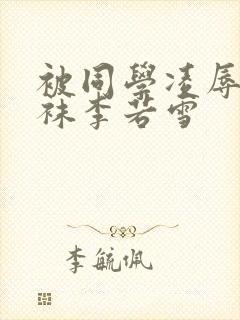 被同學凌辱
袜李若雪
李毓佩